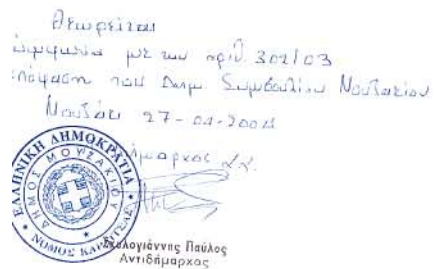 Θεωρείται
σύμφωνα με την αριθ. 301/03
απόφαση του Δημ. Συμβουλίου Μουζακίου
Μουζάκι 27-01-2004
ΕΛΛΗΝΙΚΗ ΔΗΜΟΚΡΑΤΙΑ
ΔΗΜΟΣ ΜΟΥΖΑΚΙΟΥ
ΝΟΜΟΣ ΚΑΡΔΙΤΣΑΣ
Παύλος
Αντιδήμαρχος